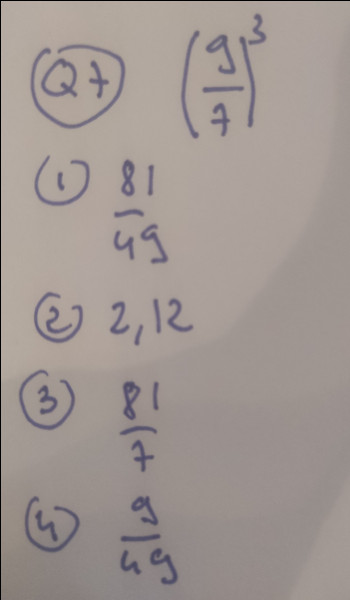 Q7 (9/7)^3
① 81/49
② 2,12
③ 81/7
④ 9/49